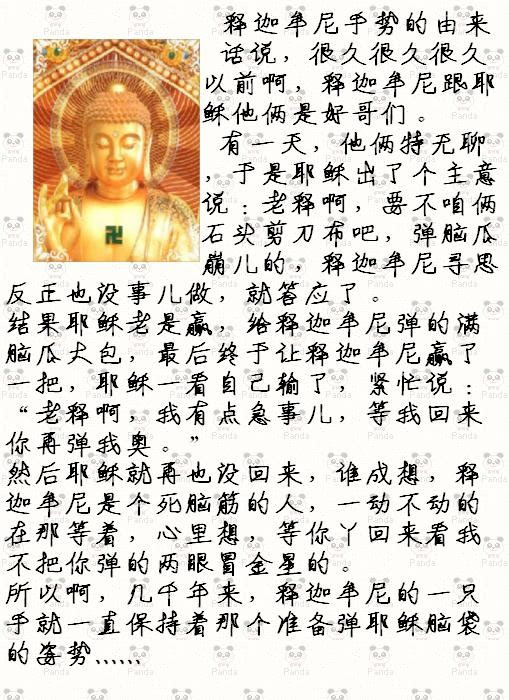 释迦牟尼手势的由来
话说，很久很久很久
以前啊，释迦牟尼跟耶
稣他俩是好哥们。
有一天，他俩特无聊
，于是耶稣出了个主意
说：老释啊，要不咱俩
石头剪刀布吧，弹脑瓜
崩儿的，释迦牟尼寻思
反正也没事儿做，就答应了。
结果耶稣老是赢，给释迦牟尼弹的满
脑瓜大包，最后终于让释迦牟尼赢了
一把，耶稣一看自己输了，紧忙说：
“老释啊，我有点急事儿，等我回来
你再弹我奥。”
然后耶稣就再也没回来，谁成想，释
迦牟尼是个死脑筋的人，一动不动的
在那等着，心里想，等你丫回来看我
不把你弹的两眼冒金星的。
所以啊，几千年来，释迦牟尼的一只
手就一直保持着那个准备弹耶稣脑袋
的姿势……
卍
Panda